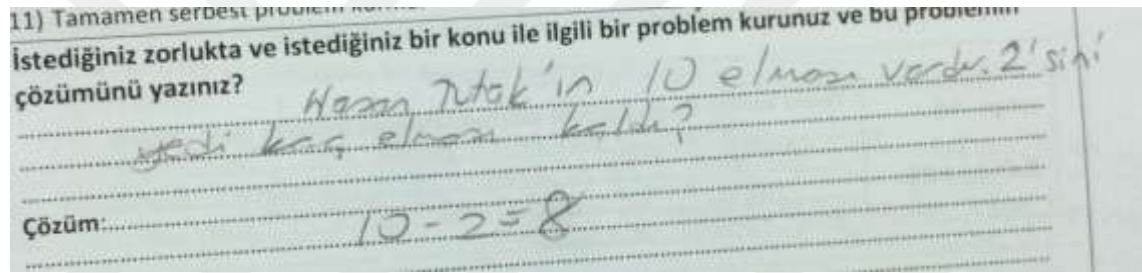 11) Tamamen serbest problem
İstediğiniz zorlukta ve istediğiniz bir konu ile ilgili bir problem kurunuz ve bu problemin
çözümünü yazınız?
Hasan Tutak'ın 10 elması vardır. 2'sini
yedi kaç elması kaldı?
Çözüm:
10-2=8